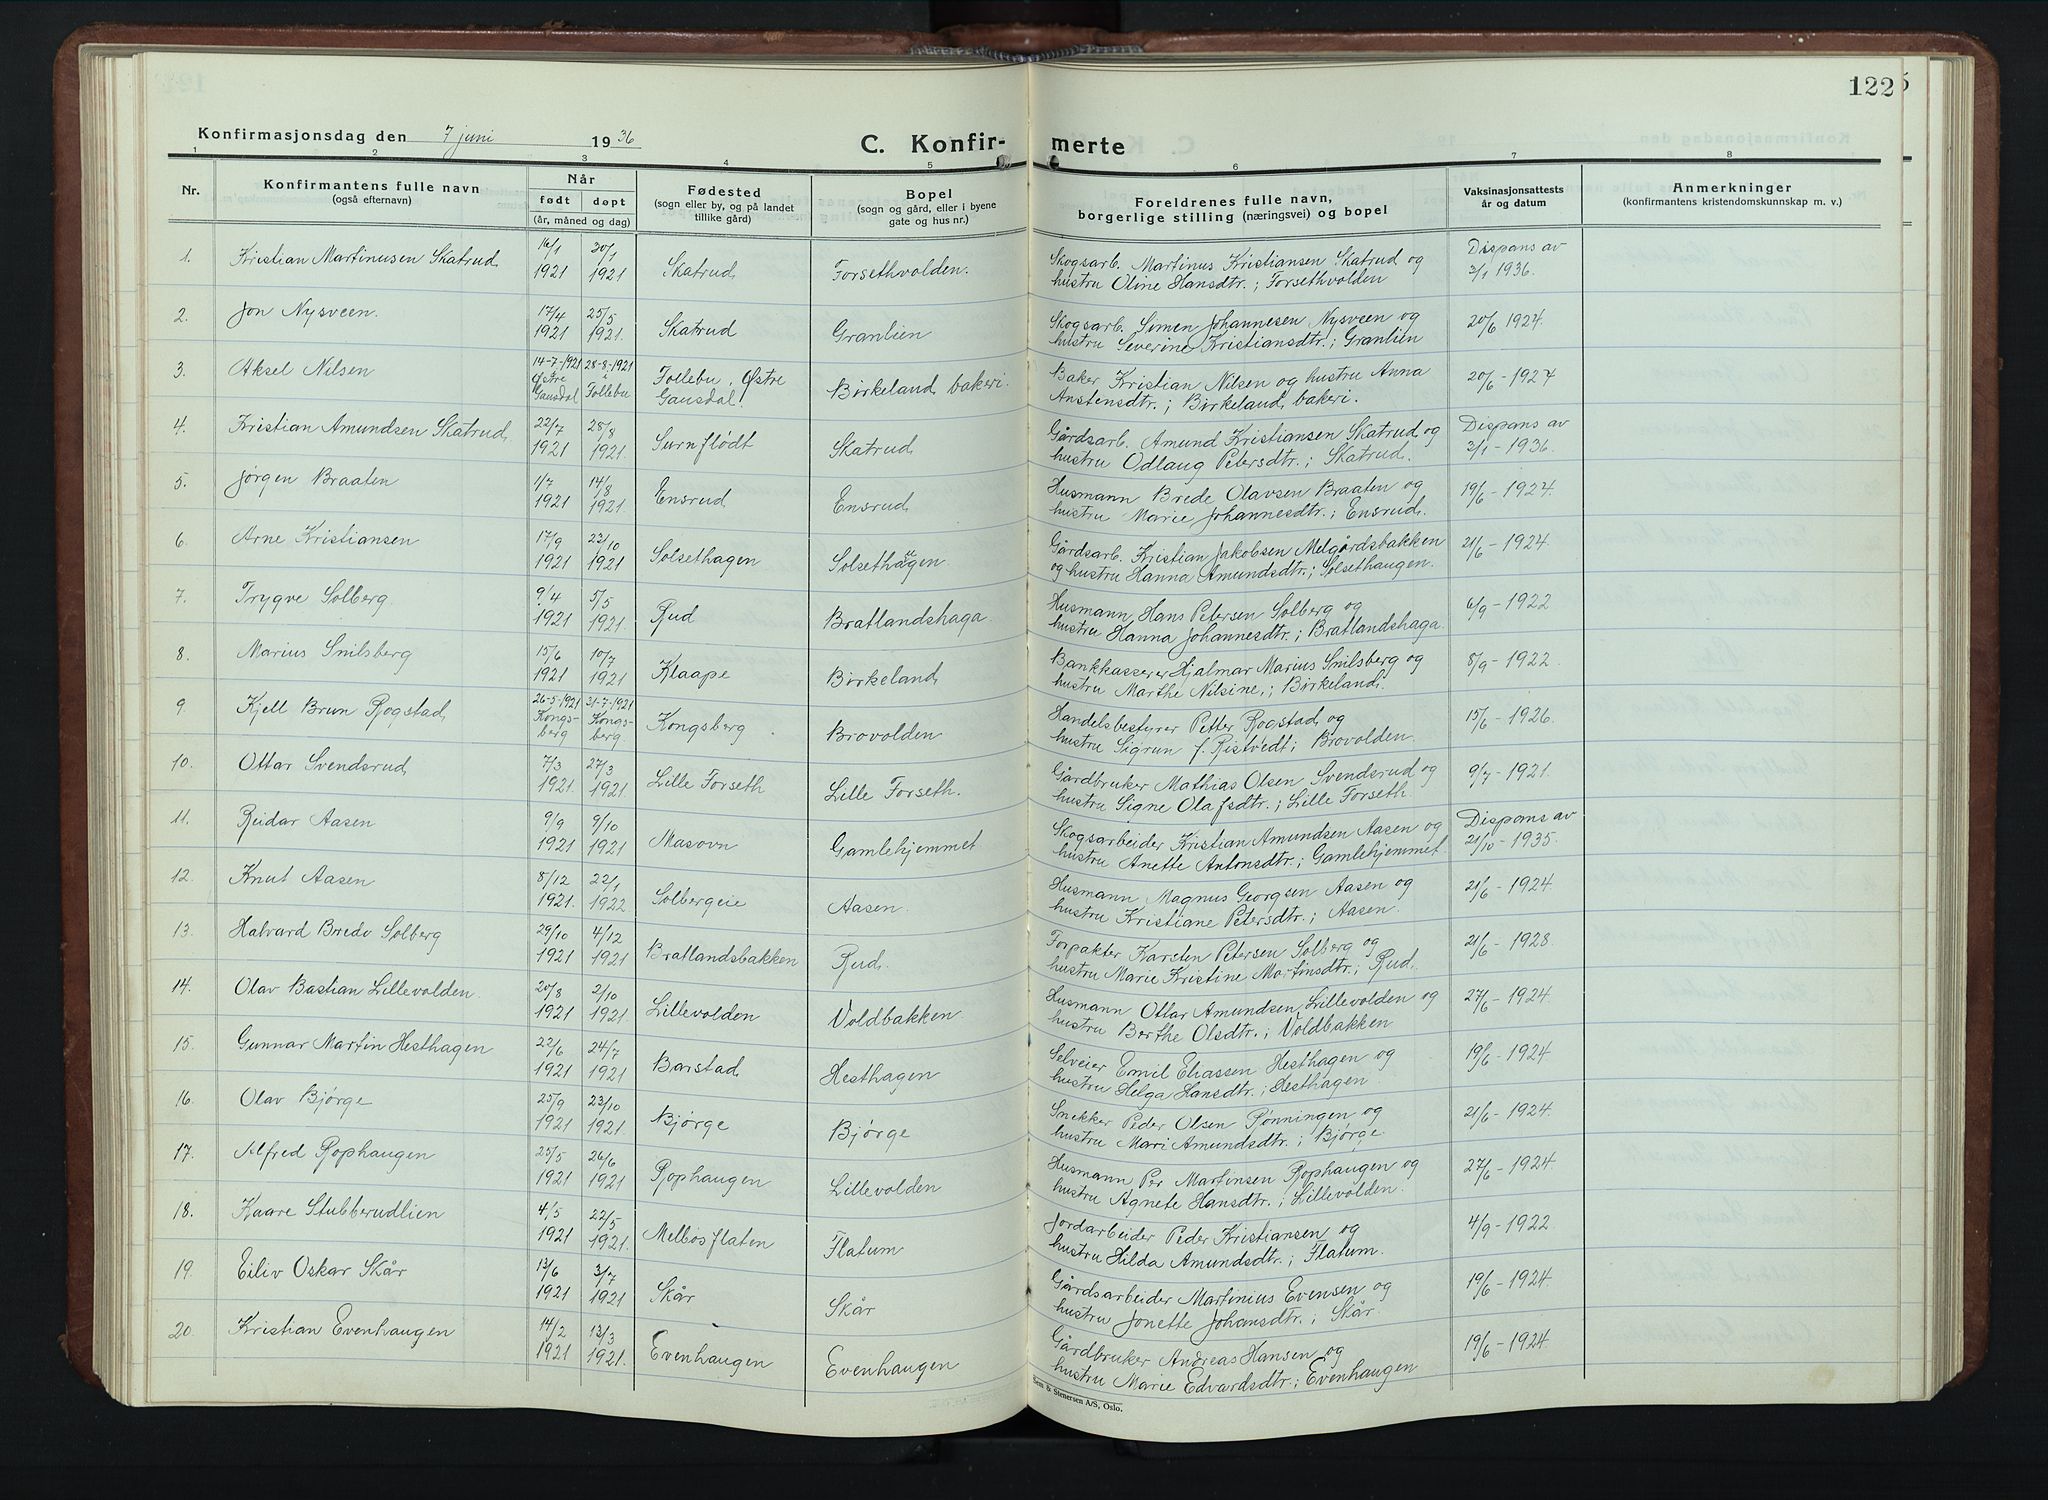 122
Konfirmasjonsdag den 7 juni 1936
C. Konfirmerte
1 2 3 4 5 6 7 8
Nr. Konfirmantens fulle navn (også efternavn) Når født døpt (år, måned og dag) Fødested (sogn eller by, og på landet tillike gård) Bopel (sogn og gård, eller i byene gate og hus nr.) Foreldrenes fulle navn, borgerlige stilling (næringsvei) og bopel Vaksinasjonsattests år og datum Anmerkninger (konfirmantens kristendomskunnskap m. v.)
1. Kristian Martinusen Skatrud 16/1 1921 30/1 1921 Skatrud Forsethvolden. Skogsarb. Martinus Kristiansen Skatrud og hustru Oline Hansdtr.; Forsethvolden Dispens av 3/1 1936.
2. Jon Nysveen. 17/4 1921 25/5 1921 Skatrud Granlien Skogsarb. Simen Johannesen Nysveen og hustru Severine Kristiansdtr.; Granlien 20/6 1924.
3. Aksel Nilsen 14-7-1921 Østre Gausdal 28-8-1921 Follebu Follebu, Østre Gausdal. Birkeland bakeri. Baker Kristian Nilsen og hustru Anna Anstensdtr.; Birkeland bakeri. 20/6 - 1927
4. Kristian Amundsen Skatrud 22/7 1921 28/8 1921. Surnflødt Skatrud Gårdsarb. Amund Kristiansen Skatrud og hustru Odlaug Petersdtr.; Skatrud. Dispens av 3/1 - 1936.
5. Jørgen Braaten 1/7 1921 14/8 1921. Ensrud Ensrud Husmann Brede Olavsen Braaten og hustru Marie Johannesdtr.; Ensrud. 19/6 - 1924.
6. Arne Kristiansen 17/9 1921 23/10 1921 Solsethagen Solsethaugen Gårdsarb. Kristian Jakobsen Melgårdsbakken og hustru Hanna Amundsdtr.; Solsethaugen. 21/6 - 1924.
7. Trygve Solberg. 9/4 1921 5/5 1921 Rud Bratlandshaga Husmann Hans Petersen Solberg og hustru Hanna Johannesdtr.; Bratlandshaga. 6/9 - 1922
8. Marius Snilsberg 15/6 1921 10/7 1921 Klaape Birkeland Bankkasserer Hjalmar Marius Snilsberg og hustru Marthe Nilsine,; Birkeland. 8/9 - 1922.
9 Kjell Brun Rogstad 26-5-1921 Kongsberg 31-7-1921 Kongsberg. Kongsberg Brovolden Handelsbestyrer Petter Rogstad og hustru Sigrun f. Ristvedt; Brovolden. 15/6 - 1926.
10. Ottar Svendsrud 7/3 1921. 27/3 1921. Lille Forseth Lille Forseth. Gårdbruker Mathias Olsen Svendsrud og hustru Signe Olafsdtr.; Lille Forseth. 9/7 - 1921.
11. Reidar Aasen 9/9 1921 9/10 1921 Masovn Gamlehjemmet Skogsarbeider Kristian Amundsen Aasen og hustru Anette Antonsdtr.; Gamlehjemmet. Dispens av 21/10 - 1935.
12. Knut Aasen 8/12 1921. 22/1 1922 Solbergeie Aasen. Husmann Magnus Georgsen Aasen og hustru Kristiane Petersdtr.; Aasen. 21/6 - 1924.
13. Halvard Bredo Solberg 29/10 1921 4/12 1921 Bratlandsbakken Rud. Forpakter Karsten Petersen Solberg og hustru Marie Kristine Martinsdtr.; Rud. 21/6 - 1928.
14. Olav Bastian Lillevolden. 20/8 1921 2/10 1921. Lillevolden Voldbakken Husmann Ottar Amundsen Lillevolden og hustru Berthe Olsdtr.; Voldbakken 27/6 - 1924.
15. Gunnar Martin Hesthagen 22/6 1921 24/7 1921 Barstad Hesthagen Selveier Emil Eliassen Hesthagen og hustru Helga Hansdtr.; Hesthagen. 19/6 - 1924
16. Olav Bjørge 25/9 1921 23/10 1921 Bjørge Bjørge Snekker Peder Olsen Rønningen og hustru Mari Amundsdtr.; Bjørge. 21/6 - 1924.
17. Alfred Rophaugen 25/5 1921 26/6 1921 Rophaugen Lillevolden Husmann Per Martinsen Rophaugen og hustru Agnete Hansdtr.; Lillevolden. 27/6 - 1924.
18. Kaare Stubberudlien 4/5 1921 22/5 1921. Melbøsflaten Flatum Jordarbeider Peder Kristiansen og hustru Hilda Amundsdtr.; Flatum. 4/9 - 1922.
19. Eiliv Oskar Skår 13/6 1921 3/7 1921 Skår Skår Gårdsarbeider Martinius Evensen og hustru Jonette Johansdtr.; Skår. 19/6 - 1924
20. Kristian Evenhaugen 14/2 1921 13/3 1921. Evenhaugen Evenhaugen Gårdbruker Andreas Hansen og hustru Marie Edvardsdtr.; Evenhaugen 19/6 - 1924.
Sem & Stenersen A/S, Oslo.